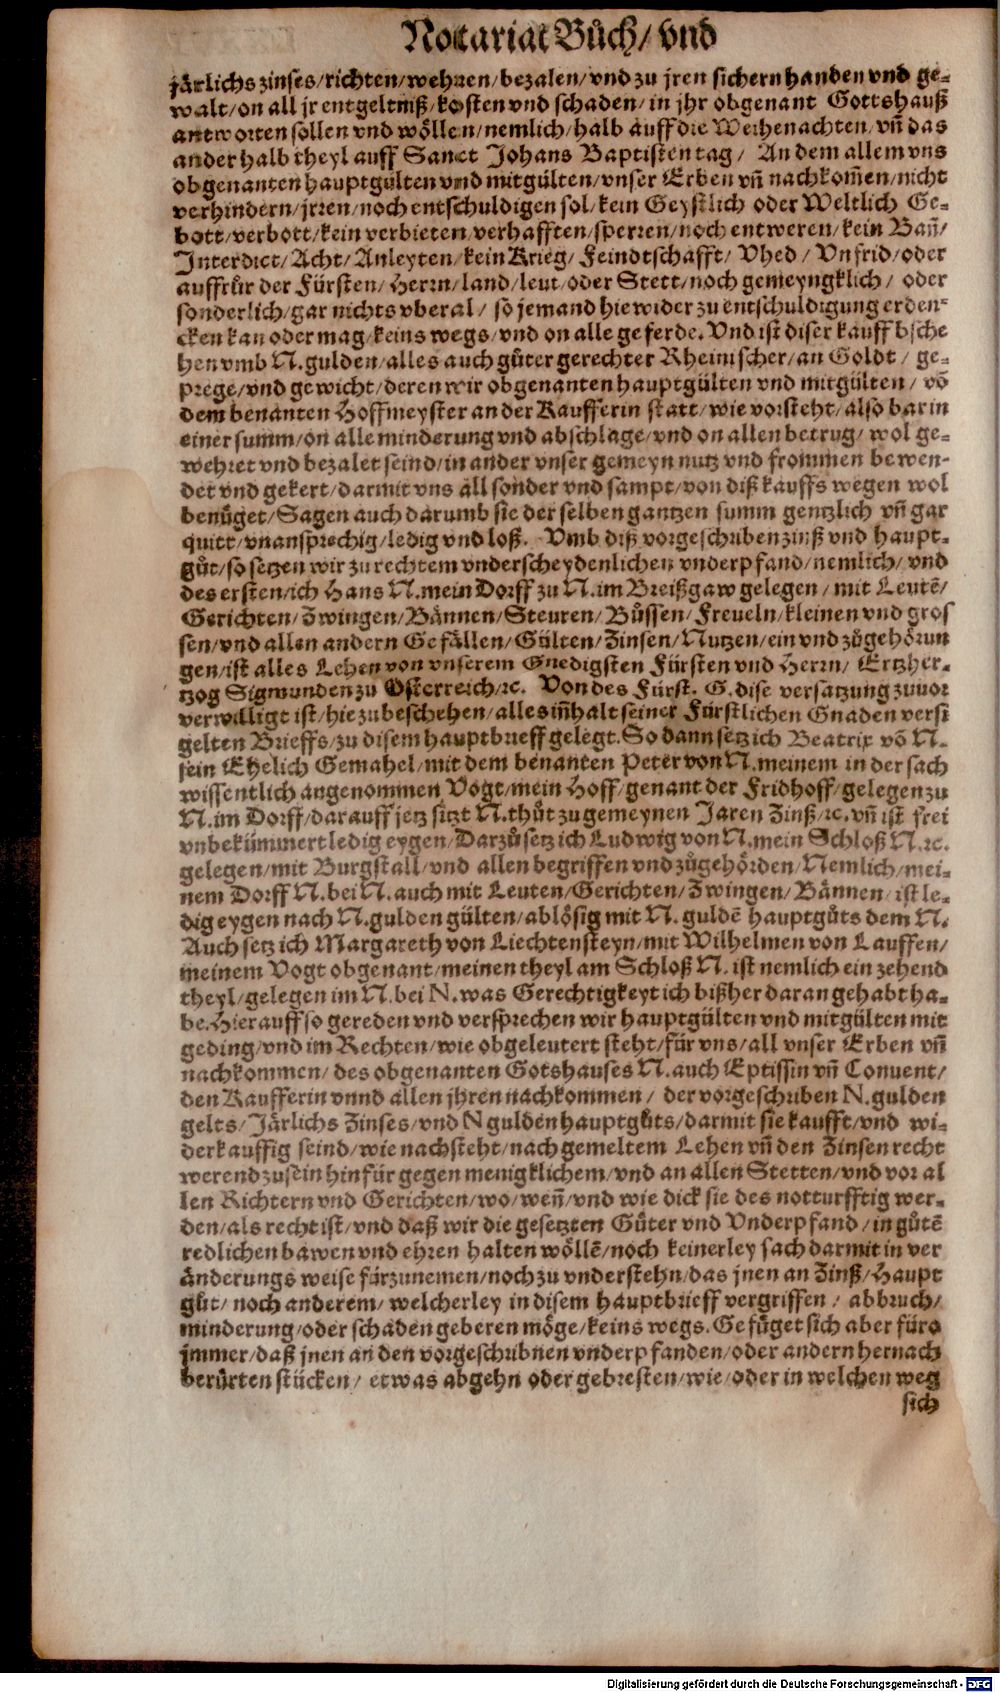 Notariat Bůch/ vnd
järlichs zinses/richten/wehren/bezalen/vnd zu jren sichern handen vnd ge-
walt/on all jr entgeltniß/kosten vnd schaden/in jhr obgenant Gottshauß
antworten sollen vnd wöllen/nemlich/halb auff die Weihenachten/vn̄ das
ander halb theyl auff Sanct Johans Baptisten tag/ An dem allem vns
obgenanten hauptgülten vnd mitgülten/vnser Erben vn̄ nachkom̄en/nicht
verhindern/jrren/noch entschuldigen sol/kein Geystlich oder Weltlich Ge-
bott/verbott/kein verbieten/verhafften/sperren/noch entweren/kein Ban̄/
Interdict/Acht/Anleyten/kein Krieg/Feindtschafft/ Vhed/ Vnfrid/oder
auffrůr der Fürsten/Herrn/land/leut/oder Stett/noch gemeyngklich/ oder
sonderlich/gar nichts vberal/ so jemand hiewider zu entschuldigung erden-
cken kan oder mag/keins wegs/vnd on alle geferde. Vnd ist diser kauff bsche
hen vmb N. gulden/alles auch gůter gerechter Rheinischer/an Goldt/ ge-
prege/vnd gewicht/deren wir obgenanten hauptgülten vnd mitgülten/ vō
dem benanten Hoffmeyster an der Kaufferin statt/wie vorsteht/also bar in
einer summ/on alle minderung vnd abschlage/vnd on allen betrug/ wol ge-
wehret vnd bezalet seind/in ander vnser gemeyn nutz vnd frommen bewen-
det vnd gekert/darmit vns all sonder vnd sampt/von diß kauffs wegen wol
benůget/Sagen auch darumb sie der selben gantzen summ gentzlich vn̄ gar
quitt/vnansprechig/ledig vnd loß. Vmb diß vorgeschriben zinß vnd haupt-
gůt/so setzen wir zu rechtem vnderscheydenlichen vnderpfand/nemlich/vnd
des ersten/ich Hans N. mein Dorff zu N. im Breißgaw gelegen/ mit Leutē/
Gerichten/Zwingen/Bännen/Steuren/Bůssen/Freueln/kleinen vnd gros
sen/vnd allen andern Gefällen/Gülten/Zinsen/Nutzen/ein vnd zůgehörun
gen/ist alles Lehen von vnserem Gnedigsten Fürsten vnd Herrn/ Ertzher-
tzog Sigmunden zu Osterreich/ꝛc. Von des Fürst. G. dise versatzung zuuor
verwilligt ist/hie zu beschehen/alles in̄halt seiner Fürstlichen Gnaden versi
gelten Brieffs/zu disem hauptbrieff gelegt. So dann setz ich Beatrix vō N.
sein Ehelich Gemahel/mit dem benanten Peter von N. meinem in der sach
wissentlich angenommen Vogt/mein Hoff/genant der Fridhoff/gelegen zu
N. im Dorff/darauff jetz sitzt N. thůt zu gemeynen Jaren Zinß/ꝛc. vn̄ ist frei
vnbekümmert ledig eygen/Darzů setz ich Ludwig von N. mein Schloß N. ꝛc.
gelegen/mit Burgstall/vnd allen begriffen vnd zůgehörden/Nemlich/mei-
nem Dorff N. bei N. auch mit Leuten/Gerichten/Zwingen/Bännen/ist le-
dig eygen nach N. gulden gülten/ablösig mit N. guldē hauptgůts dem N.
Auch setz ich Margareth von Liechtensteyn/mit Wilhelmen von Lauffen/
meinem Vogt obgenant/meinen theyl am Schloß N. ist nemlich ein zehend
theyl/gelegen im N. bei N. was Gerechtigkeyt ich bißher daran gehabt ha-
be. Hierauff so gereden vnd versprechen wir hauptgülten vnd mitgülten mit
geding/vnd im Rechten/wie obgeleutert steht/für vns/all vnser Erben vn̄
nachkommen/ des obgenanten Gotshauses N. auch Eptissin vn̄ Conuent/
den Kaufferin vnnd allen jhren nachkommen/ der vorgeschriben N. gulden
gelts/ Järlichs Zinses/vnd N gulden hauptgůts/darmit sie kaufft/vnd wi-
derkauffig seind/wie nachsteht/nach gemeltem Lehen vn̄ den Zinsen recht
werend zu sein hinfür gegen menigklichem/vnd an allen Stetten/vnd vor al
len Richtern vnd Gerichten/wo/wen̄/vnd wie dick sie des notturfftig wer-
den/als recht ist/vnd daß wir die gesetzten Gůter vnd Vnderpfand/in gůtē
redlichen bawen vnd ehren halten wöllē/noch keinerley sach darmit in ver
änderungs weise fürzunemen/noch zu vnderstehn/das jnen an Zinß/Haupt
gůt/ noch anderem/ welcherley in disem hauptbrieff vergriffen/ abbruch/
minderung/oder schaden geberen möge/keins wegs. Gefůget sich aber füro
jmmer/daß jnen an den vorgeschribnen vnderpfanden/oder andern hernach
berürten stücken/ etwas abgehn oder gebresten/wie/oder in welchen weg
sich
Digitalisierung gefördert durch die Deutsche Forschungsgemeinschaft - DFG